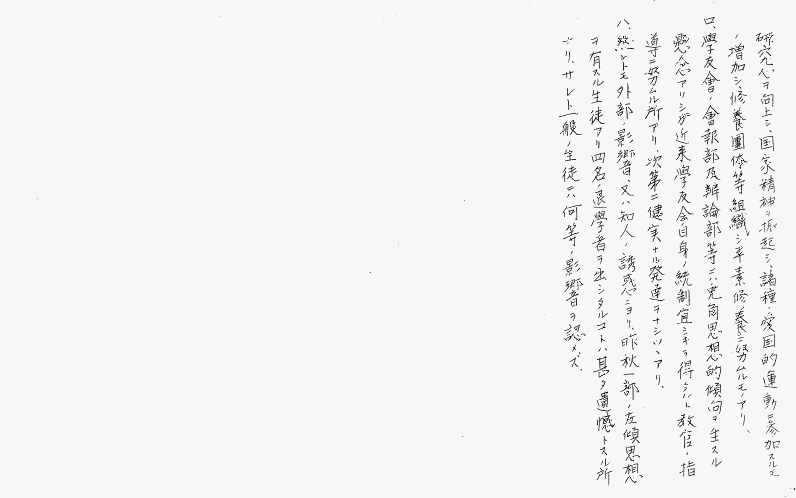 研究心ヲ向上シ、国家精神ヲ振起シ、諸種ノ愛国的運動ニ参加スルモノ
ノ増加シ、修養團体等組織シ平素修養ニ努ムルモノアリ、
ロ、學友會ノ會報部及辨論部等ニハ兎角思想的傾向ヲ生スル
懸念アリシガ近来學友会自身ノ統制宜シキヲ得ルト教官ノ指
導ニ努ムル所アリ、次第ニ健実ナル発達ヲナシツヽアリ、
ハ、然レトモ外部ノ影響、又ハ知人ノ誘惑ニヨリ、昨秋一部ノ左傾思想
ヲ有スル生徒アリ四名ノ退學者ヲ出シタルコトハ甚タ遺憾トスル所
ナリ、サレト一般ノ生徒ニハ何等ノ影響ヲ認メズ、